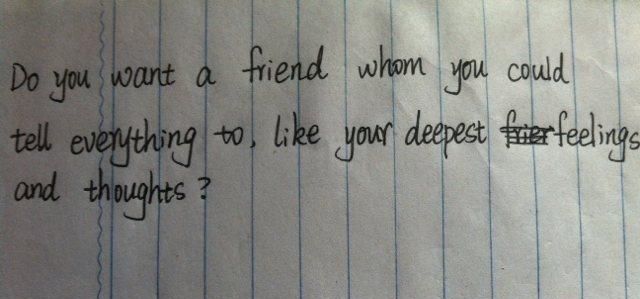 Do you want a friend whom you could
tell everything to, like your deepest feelings
and thoughts?